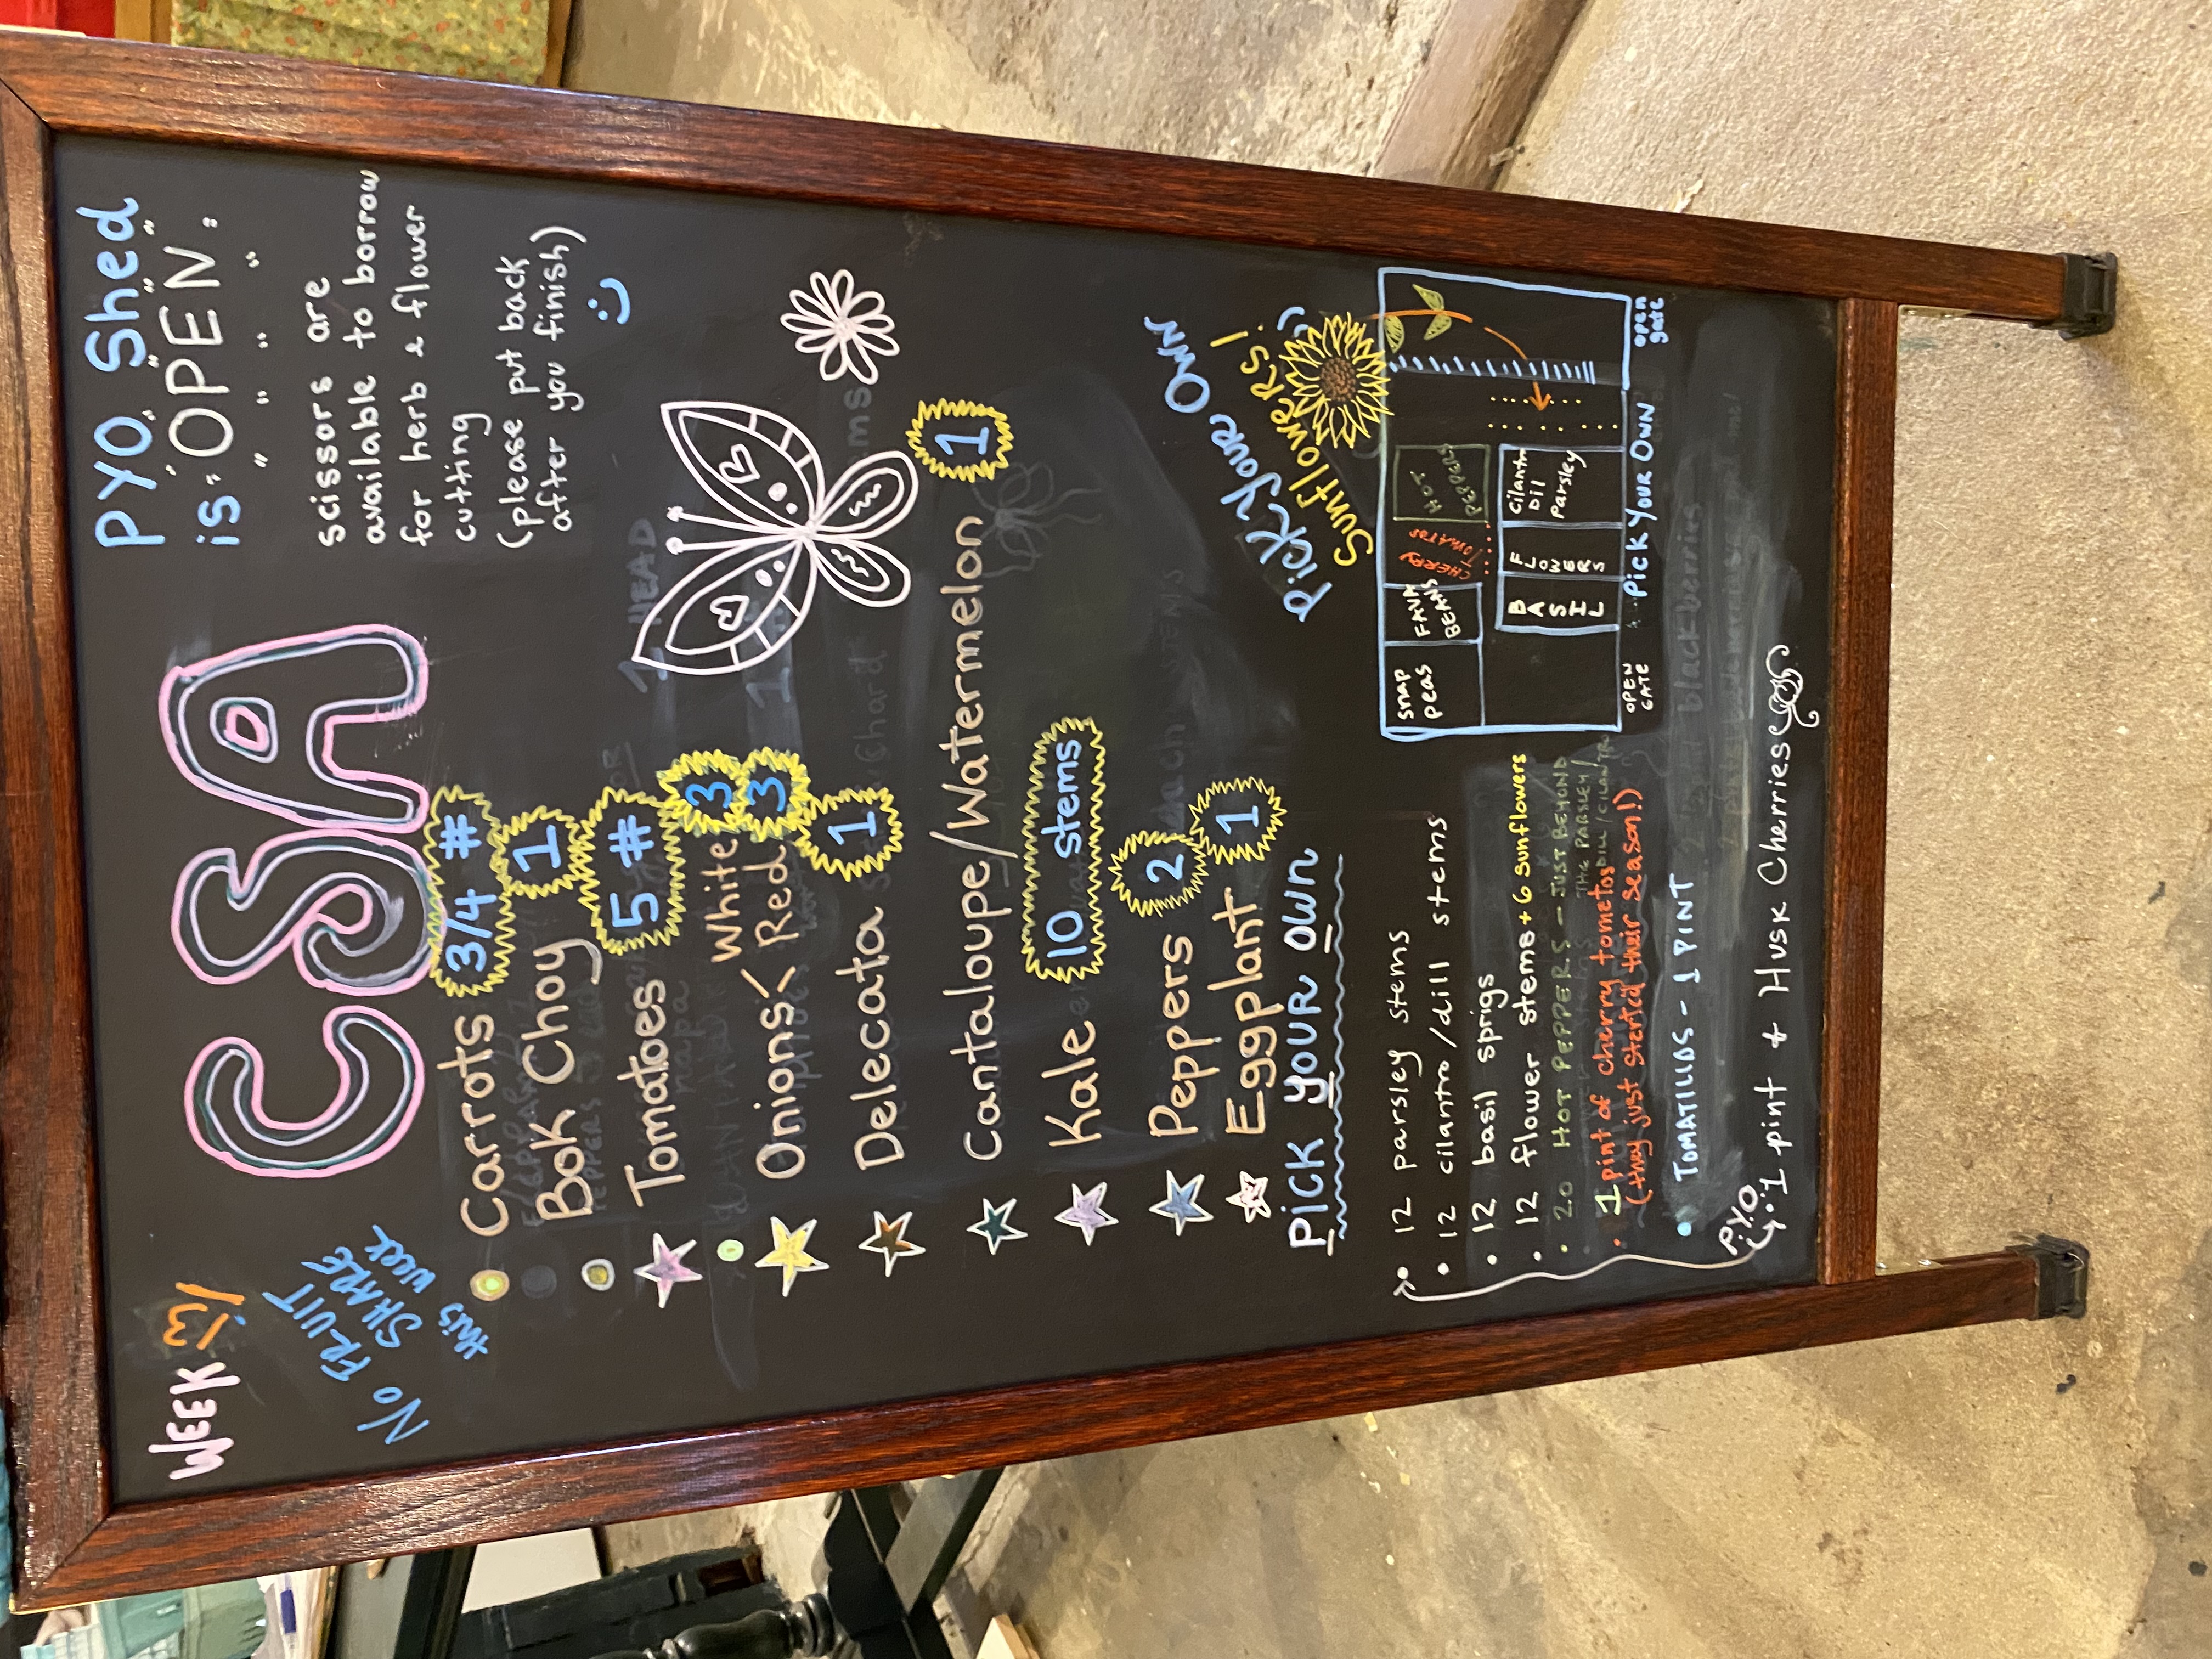 WEEK 13!
NO FRUIT
SHARE
this week
CSA
PYO Shed
is OPEN
scissors are
available to borrow
for herb & flower
cutting
(please put back
after you finish)
Carrots 3/4 #
Bok Choy 1
Tomatoes 5 #
Onions < White 3
Red 3
Delecata 1
Cantaloupe/Watermelon 1
Kale 10 stems
Peppers 2
Eggplant 1
PICK YOUR OWN
12 parsley stems
12 cilantro/dill stems
12 basil sprigs
12 flower stems + 6 sunflowers
20 HOT PEPPERS - JUST BEYOND
THE PARSLEY/
DILL/CILANTRO
1 pint of cherry tomatos
(they just started their season!)
TOMATILLOS - 1 PINT
P.Y.O.
1 pint + Husk Cherries
Pick Your Own
Sunflowers!
snap
peas
FAVA
BEANS
CHERRY
TOMATOS
HOT
PEPPERS
BASIL
FLOWERS
cilantro
Dil
parsley
OPEN
GATE
Pick Your Own
open
gate
1 HEAD
Chard
black berries